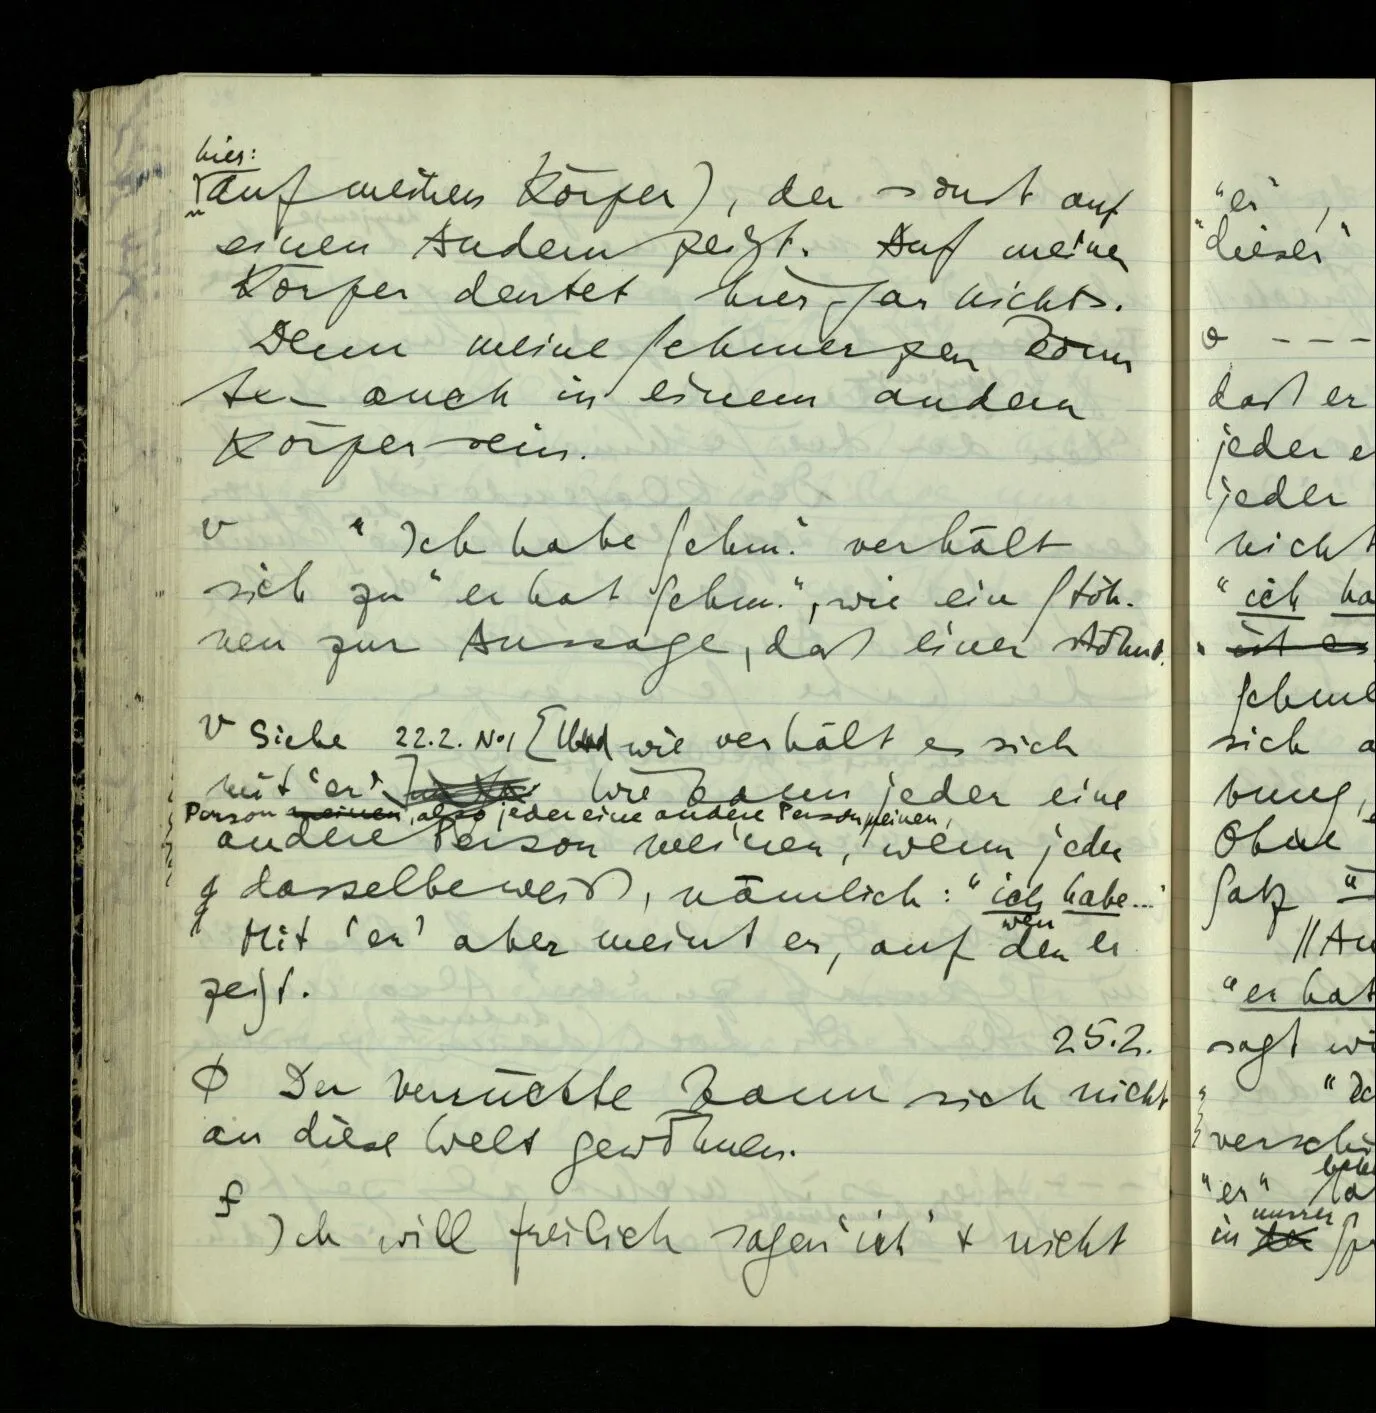 hier:
(auf meinen Körper), der sonst auf
einen Andern zeigt. Auf meinen
Körper deutet hier gar nichts.
Denn meine Schmerzen könn
ten auch in einem andern
Körper sein.
v " Ich habe Schm." verhält
sich zu "er hat Schm.", wie ein Stöh-
nen zur Aussage, daß einer stöhnt.
v Siehe 22.2. No1 [Und wie verhält es sich
mit 'er'] Wie kann jeder eine
Person meinen, also jeder eine andere Person meinen,
andere Person meinen, wenn jeder
dasselbe weiß, nämlich: "ich habe..."
wen
Mit 'er' aber meint er, auf den er
zeigt.
25.2.
Ø Der Verrückte kann sich nicht
an diese Welt gewöhnen.
f
Ich will freilich sagen 'ich' + nicht
"er",
"dieser"
ø - - -
daß er
jeder e
jeder
nicht
"ich ha
ist es
Schme
sich a
bung,
Ohne
Satz "
//An
"er hat
sagt wi
verschi
"er" ha
unsrer
in der Sp